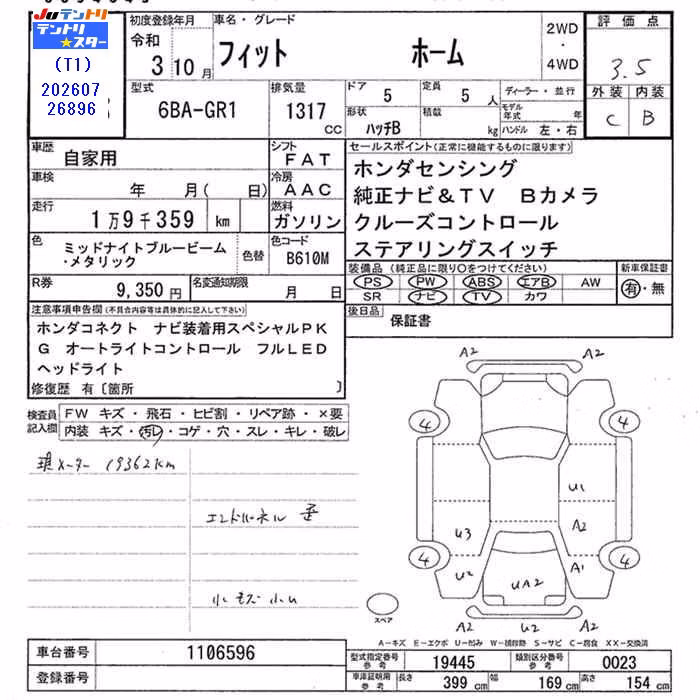 Juテントリ
テントリ★スター
(T1)
202607
26896
初度登録年月
令和
3 10月
車名・グレード
フィット ホーム
2WD
・
4WD
評価点
3.5
外装 内装
C B
型式
6BA-GR1
排気量
1317 cc
ドア 5
定員 5人
形状 ハッチB
積載 kg
ディーラー・並行
モデル年式 年
ハンドル 左・右
車歴 自家用
シフト FAT
車検 年 月( 日)
冷房 AAC
走行 1万9千359 km
燃料 ガソリン
色 ミッドナイトブルービーム
・メタリック
色替
色コード B610M
R券 9,350円
名変通知期限 月 日
セールスポイント(正常に機能するものに限ります)
ホンダセンシング
純正ナビ&TV Bカメラ
クルーズコントロール
ステアリングスイッチ
装備品(純正品に限り○をつけてください)
PS PW ABS エアB AW
SR ナビ TV カワ
新車保証書
有・無
後日品 保証書
注意事項申告欄(不具合内容等は具体的に記入して下さい)
ホンダコネクト ナビ装着用スペシャルPK
G オートライトコントロール フルLED
ヘッドライト
修復歴 有〔箇所 〕
検査員記入欄
FW キズ・飛石・ヒビ割・リペア跡・×要
内装 キズ・汚レ・コゲ・穴・スレ・キレ・破レ
現メーター 19362km
エンドパネル 歪
小キズ小U
A2 A2
A2
4 4
U1
U3 A2
4 U2 A1 4
UA2
A2 U2 A2
スペア
A-キズ E-エクボ U-凹み W-補修跡 S-サビ C-腐食 XX-交換済
車台番号 1106596
登録番号
型式指定番号参考 19445
類別区分番号参考 0023
車庫証明用参考 長さ 399cm 幅 169cm 高さ 154cm